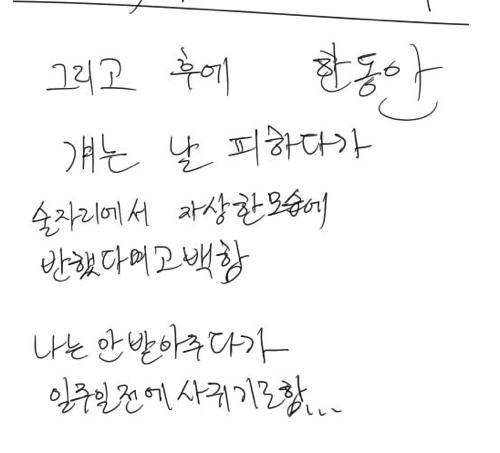 그리고 후에 한동안
걔는 날 피하다가
술자리에서 자상한모습에
반했다며고백함
나는 안받아주다가
일주일전에사귀기로함...